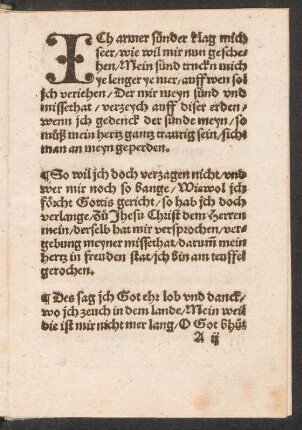 ICh armer sünder klag mich
seer/wie wil mir nun gesche-
hen/Mein sünd trucken mich
ye lenger ye mer/auff wen sol
ich veriehen/Der mir meyn sünd vnd
missethat/verzeych auff diser erden/
wenn ich gedenck der sünde meyn/so
müß mein hertz gantz traurig sein/sicht
man an meyn geperden.
¶So wil ich doch verzagen nicht/vnd
wer mir noch so bange/Wiewol ich
förcht Gottis gericht/so hab ich doch
verlange/Zů Jhesu Christ dem Herren
mein/derselb hat mir versprochen/ver-
gebung meyner missethat/darum̄ mein
hertz in freuden stat/ich bin am teuffel
gerochen.
¶Des sag ich Got ehr lob vnd danck/
wo ich zeuch in dem lande/Mein weil
die ist mir nicht mer lang/O Got bhüt
A ij